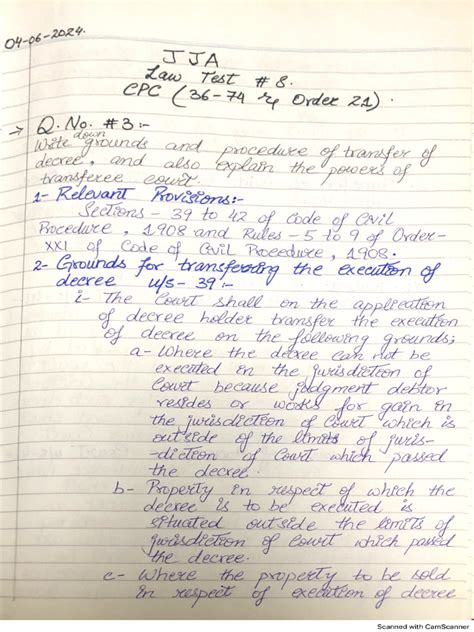 04-06-2024.
JJA
Law Test # 8.
CPC (36-74 r/w Order 21).
→ Q. No. #3:-
Write down grounds and procedure of transfer of
decree, and also explain the powers of
transferee court.
1- Relevant Provisions:-
Sections - 39 to 42 of Code of Civil
Procedure, 1908 and Rules - 5 to 9 of Order-
XXI of Code of Civil Procedure, 1908.
2- Grounds for transferring the execution of
decree u/s- 39:-
i- The Court shall on the application
of decree holder transfer the execution
of decree on the following grounds;
a- Where the decree can not be
executed in the jurisdiction of
Court because judgment debtor
resides or works for gain in
the jurisdiction of Court which is
outside of the limits of juris-
-diction of Court which passed
the decree.
b- Property in respect of which the
decree is to be executed is
situated outside the limits of
jurisdiction of Court which passed
the decree.
c- Where the property to be sold
in respect of execution of decree
Scanned with CamScanner